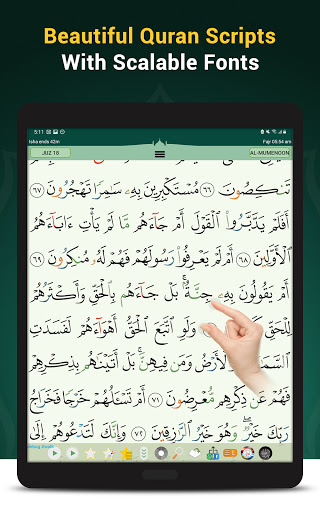 Beautiful Quran Scripts
With Scalable Fonts
5:11
Isha ends 42m
Fajr 05:54 am
JUZ 18
AL-MUMENOON
تَنكِصُونَ ٦٦ مُسْتَكْبِرِينَ بِهِۦ سَٰمِرًا تَهْجُرُونَ ٦٧
أَفَلَمْ يَدَّبَّرُوا۟ ٱلْقَوْلَ أَمْ جَآءَهُم مَّا لَمْ يَأْتِ ءَابَآءَهُمُ
ٱلْأَوَّلِينَ ٦٨ أَمْ لَمْ يَعْرِفُوا۟ رَسُولَهُمْ فَهُمْ لَهُۥ مُنكِرُونَ ٦٩
أَمْ يَقُولُونَ بِهِۦ جِنَّةٌۢ ۚ بَلْ جَآءَهُم بِٱلْحَقِّ وَأَكْثَرُهُمْ
لِلْحَقِّ وَلَوِ ٱتَّبَعَ ٱلْحَقُّ أَهْوَآءَهُمْ لَفَسَدَتِ
وَٱلْأَرْضُ وَمَن فِيهِنَّ ۚ بَلْ أَتَيْنَٰهُم بِذِكْرِهِمْ
فَهُمْ عَن ذِكْرِهِم مُّعْرِضُونَ ٧١ أَمْ تَسْـَٔلُهُمْ خَرْجًا فَخَرَاجُ
رَبِّكَ خَيْرٌ ۖ وَهُوَ خَيْرُ ٱلرَّٰزِقِينَ ٧٢ وَإِنَّكَ لَتَدْعُوهُمْ إِلَىٰ